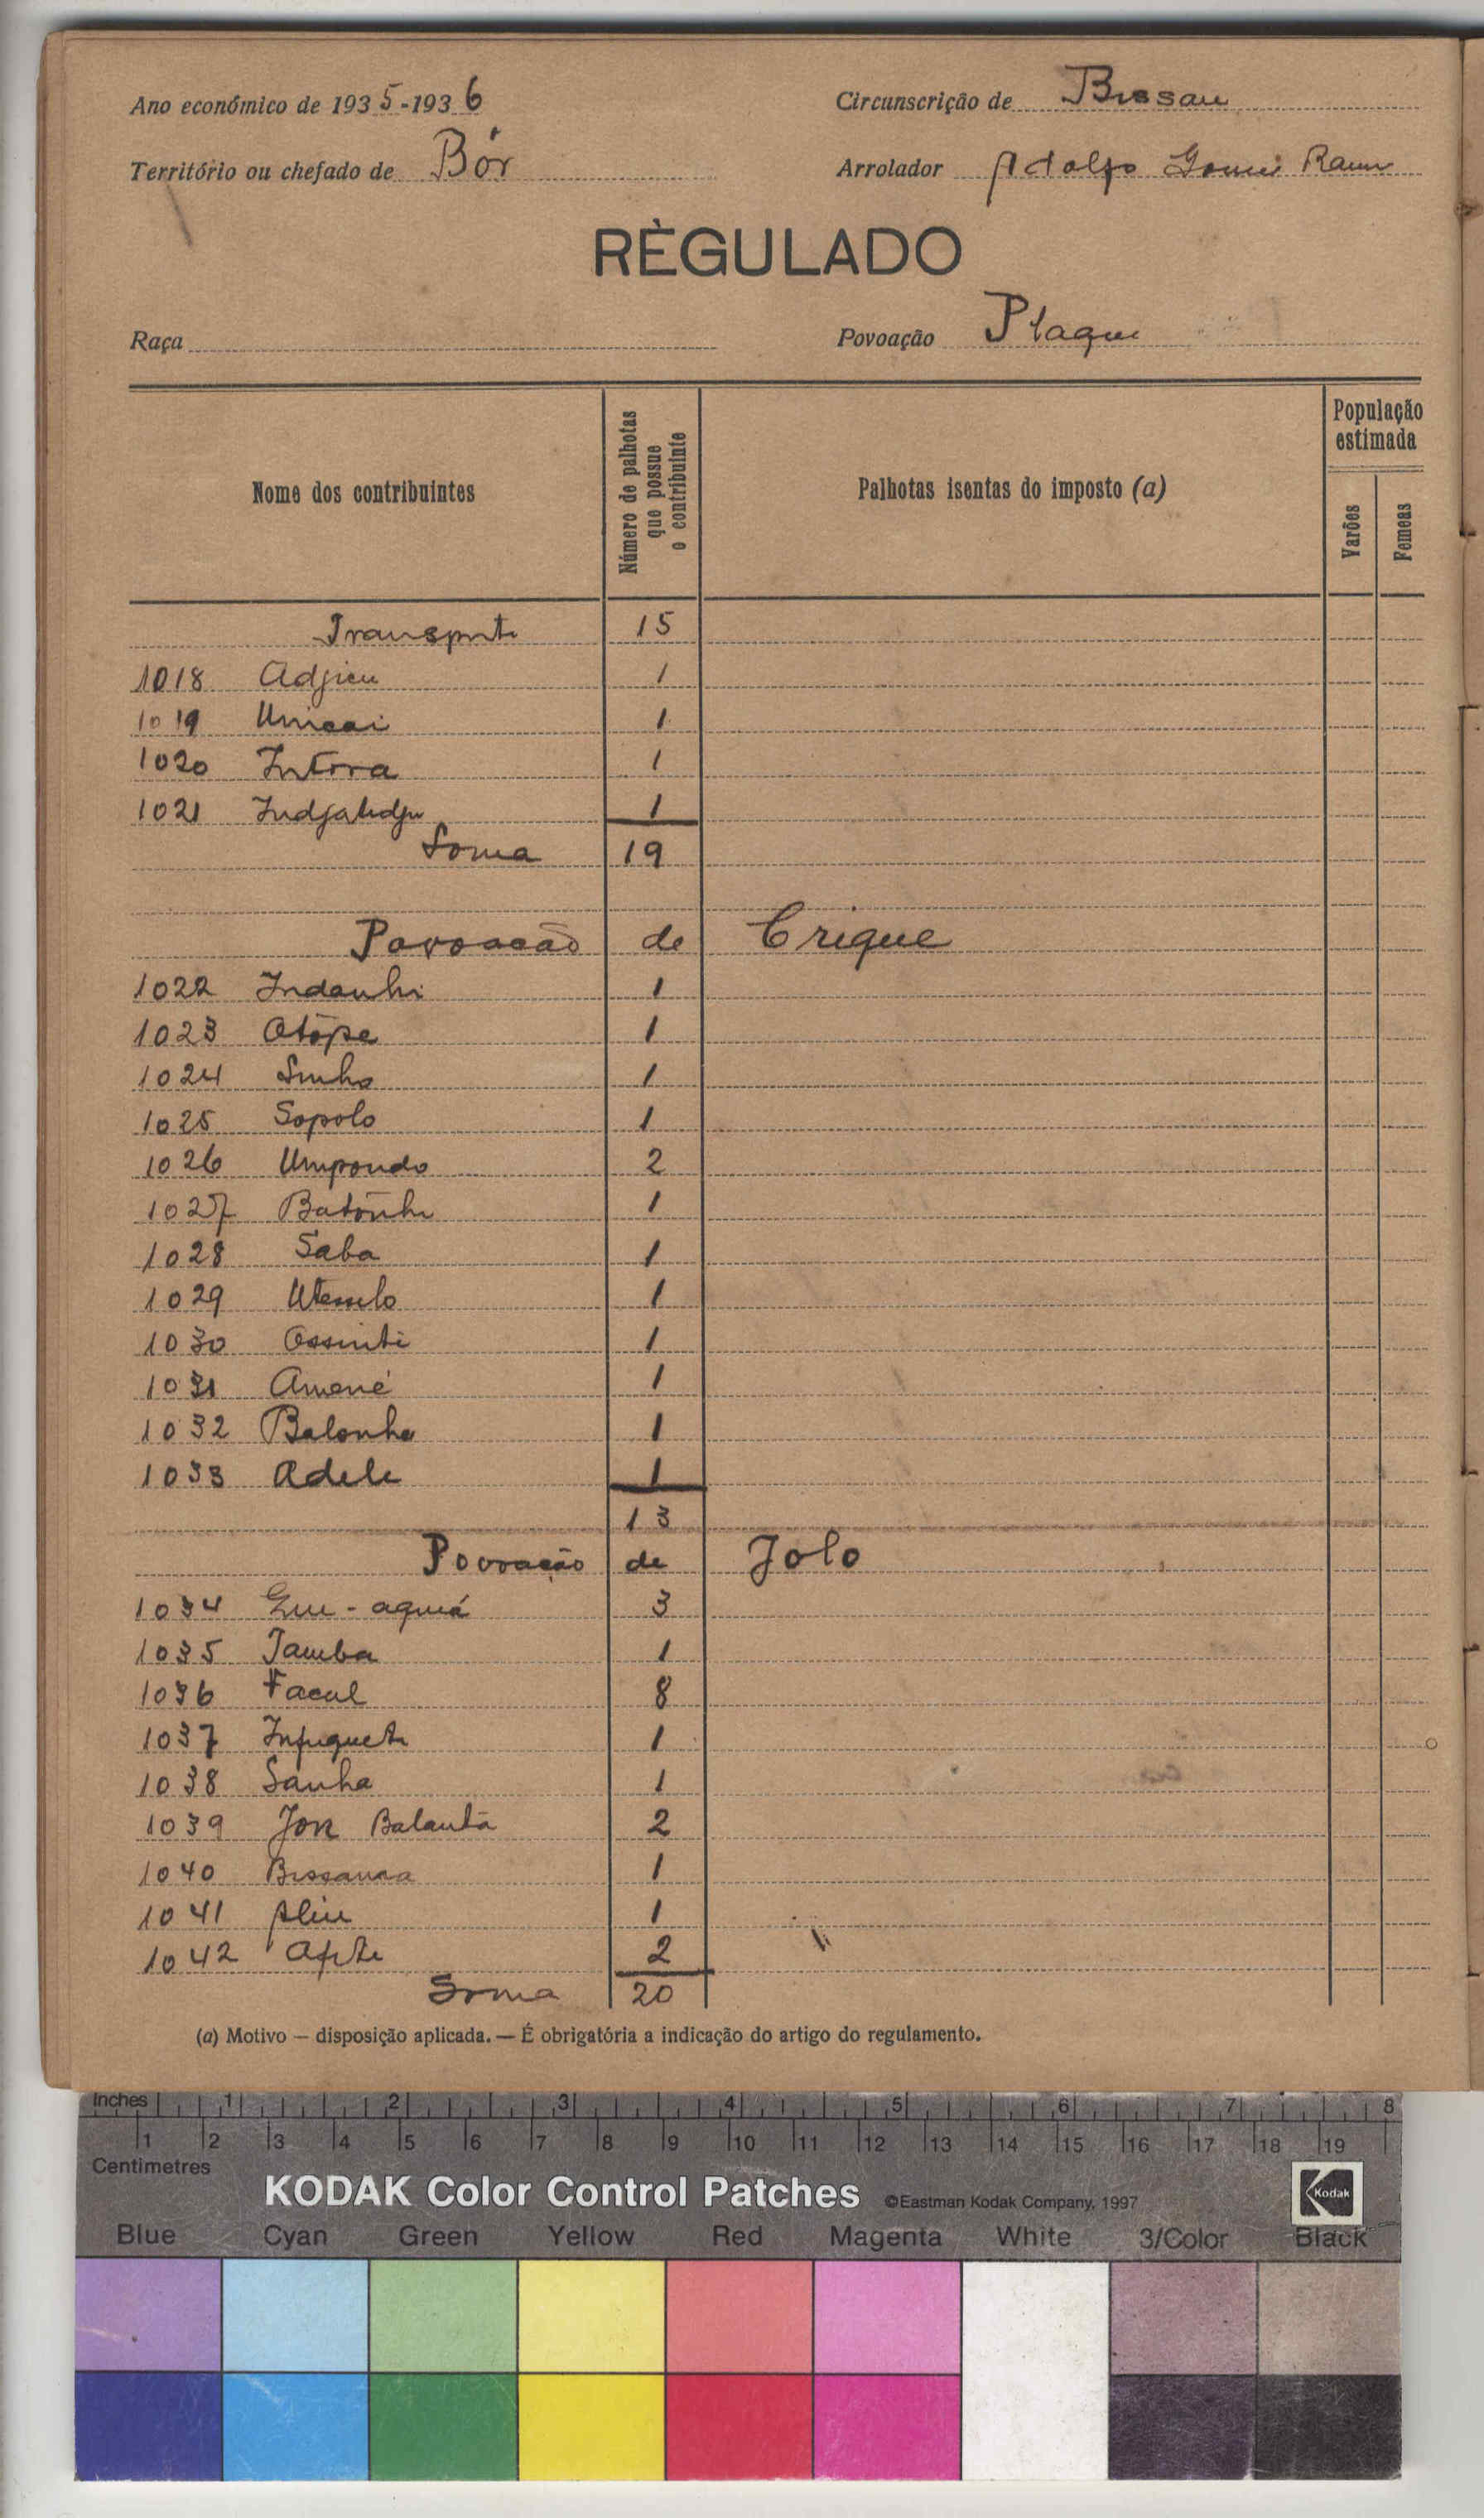 Ano económico de 1935-1936 Circunscrição de Bissau
Território ou chefado de Bór Arrolador Adolfo Gomes
RÈGULADO
Raça Povoação Plaque
Nome dos contribuintes
Número de palhotas que possue o contribuinte
Palhotas isentas do imposto (a)
População estimada
Varões
Femeas
Transporte 15
1018 Adjicu 1
1019 Unicai 1
1020 Intóra 1
1021 1
Soma 19
Povoacão de Crique
1022 Indanhi 1
1023 Otópe 1
1024 1
1025 Sopolo 1
1026 Umpondo 2
1027 Batónhi 1
1028 Saba 1
1029 1
1030 Ossinti 1
1031 Amené 1
1032 Balonha 1
1033 Adele 1
13
Povoação de Jolo
1034 3
1035 Tamba 1
1036 Facul 8
1037 1
1038 Sanha 1
1039 Balanta 2
1040 1
1041 Aliu 1
1042 2
Soma 20
(a) Motivo — disposição aplicada. — É obrigatória a indicação do artigo do regulamento.
Inches 1 2 3 4 5 6 7 8
1 2 3 4 5 6 7 8 9 10 11 12 13 14 15 16 17 18 19
Centimetres
KODAK Color Control Patches ©Eastman Kodak Company, 1997 Kodak
Blue Cyan Green Yellow Red Magenta White 3/Color Black